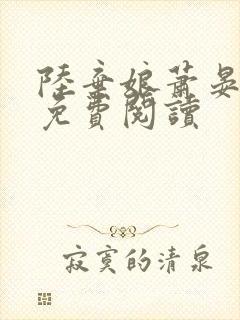 陸棄娘蕭晏
免費閱讀
寂寞的清泉